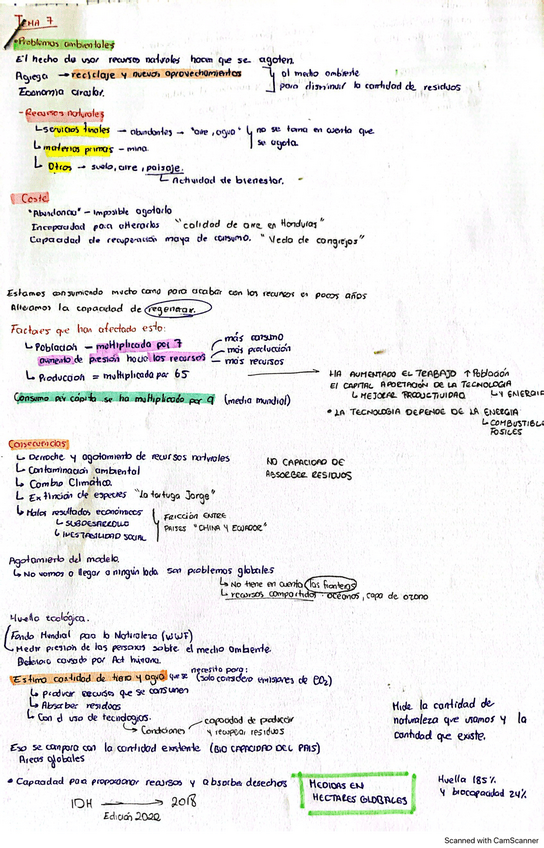 TEMA 7
• Problemas ambientales
El hecho de usar recursos naturales hacen que se agoten.
Agrega → reciclaje y nuevos aprovechamientos
Economia circular.
al medio ambiente
para disminuir la cantidad de residuos
- Recursos naturales
↳ servicios finales → abundantes → "aire, agua"
no se toma en cuenta que
se agota.
↳ materias primas - mina.
↳ Otros → suelo, aire, paisaje.
↳ Actividad de bienestar.
Coste
"Abundancia" - Imposible agotarlo
Incapacidad para alterarlos "calidad de aire en Honduras"
Capacidad de recuperación maya de consumo. "Veda de cangrejos"
Estamos consumiendo mucho como para acabar con los recursos en pocos años
Alteramos la capacidad de regenerar.
Factores que han afectado esto:
↳ Poblacion - multiplicada por 7
aumento de presión hacia los recursos
más consumo
más producción
más recursos
↳ Produccion = multiplicada por 65
Consumo per cápita se ha multiplicado por 9 (media mundial)
HA AUMENTADO EL TRABAJO ↑ Población
EL CAPITAL APORTACIÓN DE LA TECNOLOGÍA
↳ MEJORAR PRODUCTIVIDAD ↳ Y ENERGIA
• LA TECNOLOGIA DEPENDE DE LA ENERGIA
↳ COMBUSTIBLES
FOSILES
Consecuencias
↳ Derroche y agotamiento de recursos naturales
↳ Contaminación ambiental
↳ Cambio Climático.
↳ Extinción de especies "La tortuga Jorge"
↳ Malos resultados económicos
↳ SUBDESARROLLO
↳ INESTABILIDAD SOCIAL
NO CAPACIDAD DE
ABSORBER RESIDUOS
FRICCIÓN ENTRE
PAISES "CHINA Y ECUADOR"
Agotamiento del modelo.
↳ No vamos a llegar a ningún lado son problemas globales
↳ No tiene en cuenta las fronteras
↳ recursos compartidos: océanos, capa de ozono
Huella ecológica.
Fondo Mundial para la Naturaleza (WWF)
Medir presion de las personas sobre el medio ambiente.
Deterioro causado por Act humana.
Estima cantidad de tierra y agua que se necesita para: (solo considera emisiones de CO2)
↳ producir recursos que se consumen
↳ Absorber residuos
↳ Con el uso de tecnologias.
↳ Condiciones
capacidad de producir
y recuperar residuos
Mide la cantidad de
naturaleza que usamos y la
cantidad que existe.
Eso se compara con la cantidad existente (BIO CAPACIDAD DEL PAIS)
Areas globales
• Capacidad para proporcionar recursos y absorber desechos
MEDIDAS EN
HECTARES GLOBALES
Huella 185%
y biocapacidad 24%
IDH → 2018
Edición 2020
Scanned with CamScanner